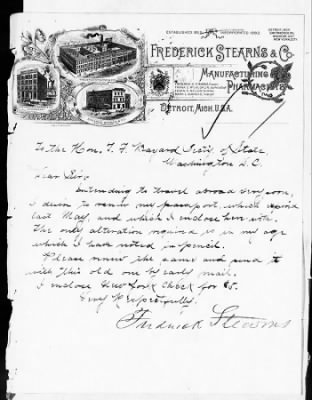 ESTABLISHED 1855
INCORPORATED 1882
FREDERICK STEARNS & CO.
MANUFACTURING
PHARMACISTS
DETROIT, MICH. U.S.A.
To the Hon. T. F. Bayard Sec'y of State
Washington D.C.
Dear Sir:
Intending to travel abroad very soon,
I desire to renew my passport, which
last May, and which I enclose herewith.
The only alteration required is in my age
which I have noted in pencil.
Please renew the same and send it
with this old one by early mail.
I enclose New York check for $5.
Very Respectfully
Frederick Stearns